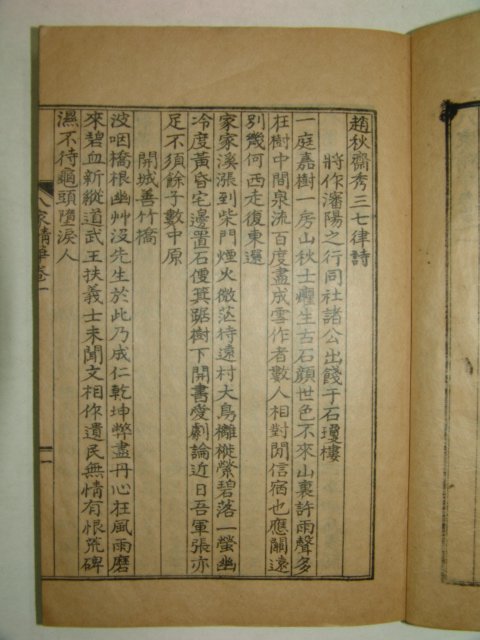 趙秋齋秀三七律詩
將作瀋陽之行同社諸公出餞于石瓊樓
一庭嘉樹一房山秋士癯生古石顔世色不來山裏許雨聲多
在樹中間泉流百度盡成雪作者數人相對閒信宿也應關遠
別幾何西走復東還
家家溪漲到柴門煙火微茫待遠村大鳥襳襹縈碧落一螢幽
冷度黃昏宅邊置石便箕踞樹下開書愛劇論近日吾軍張亦
足不須餘子數中原
開城善竹橋
波咽橋根幽艸沒先生於此乃成仁乾坤弊盡丹心在風雨磨
來碧血新縱道武王扶義士未聞文相作遺民無情有恨荒碑
濕不待龜頭墮淚人
八家精華卷一
一